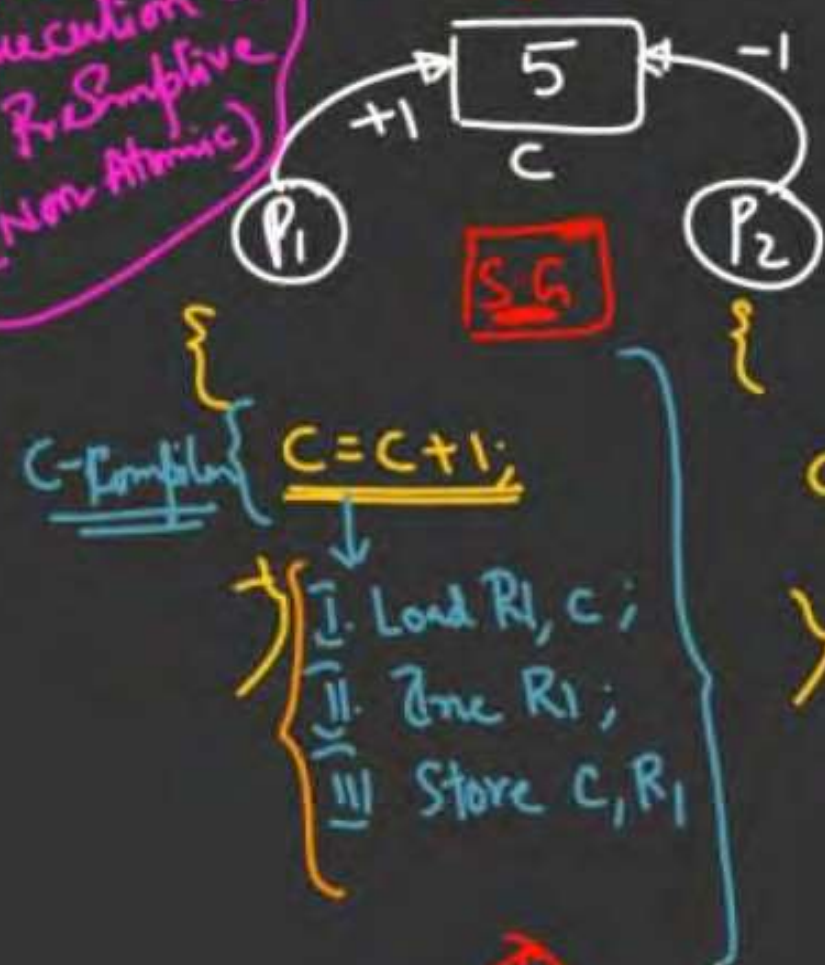 Preemptive
(Non Atomic)
5
+1
-1
C
P1
P2
S.G
{
{
C-Compiler { C=C+1;
I. Load R1, C;
II. Inc R1;
III Store C, R1